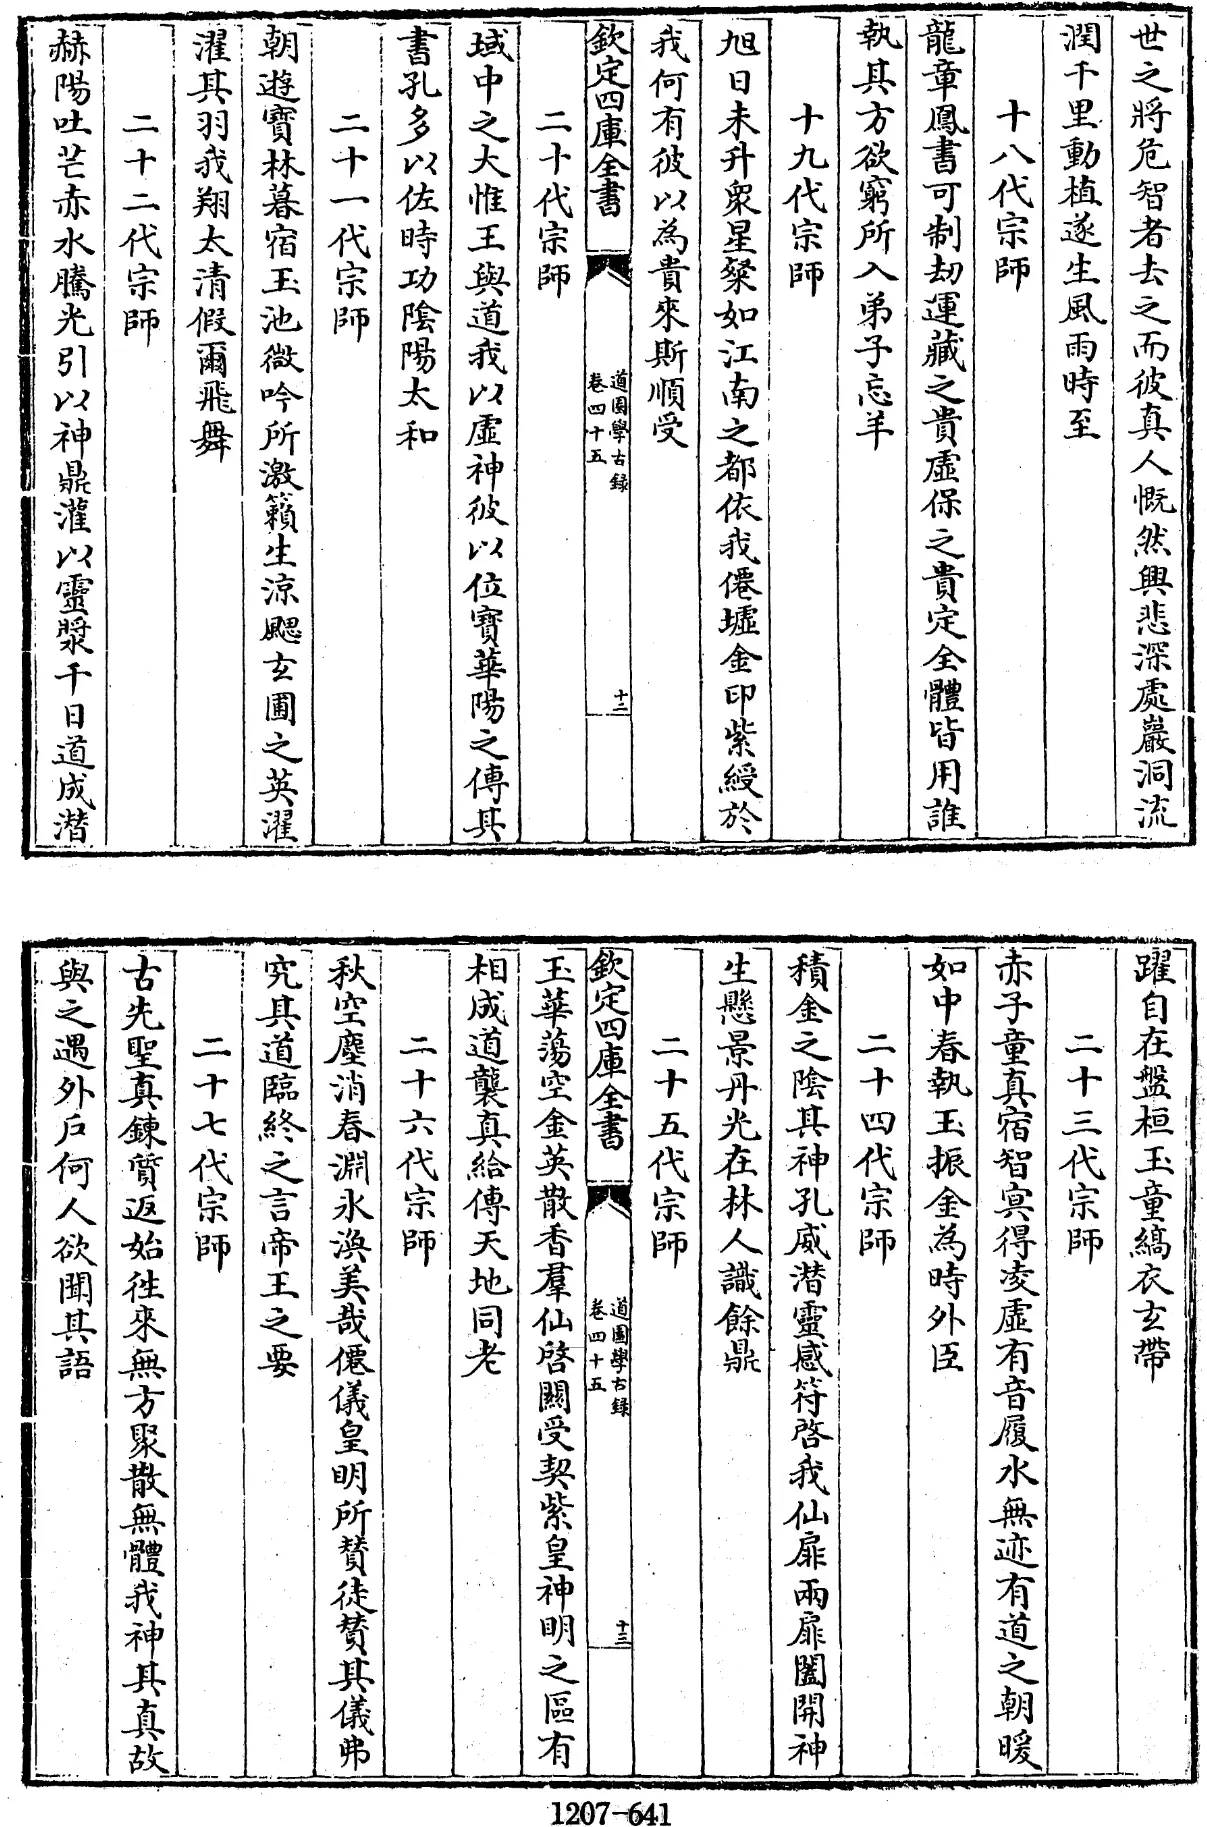 世之將危智者去之而彼真人慨然興悲深處巖洞流
潤千里動植遂生風雨時至
十八代宗師
龍章鳳書可制劫運藏之貴虛保之貴定全體皆用誰
執其方欲窮所入弟子忘羊
十九代宗師
旭日未升衆星粲如江南之都依我僊墟金印紫綬於
我何有彼以為貴來斯順受
欽定四庫全書
道園學古録
卷四十五
十二
二十代宗師
域中之大惟王與道我以虛神彼以位寶華陽之傳其
書孔多以佐時功陰陽太和
二十一代宗師
朝遊寶林暮宿玉池微吟所激籟生涼颸玄圃之英濯
濯其羽我翔太清假爾飛舞
二十二代宗師
赫陽吐芒赤水騰光引以神鼎灌以靈漿千日道成潛
躍自在盤桓玉童縞衣玄帶
二十三代宗師
赤子童真宿智冥得凌虛有音履水無迹有道之朝暖
如中春執玉振金為時外臣
二十四代宗師
積金之陰其神孔威潛靈感符啓我仙扉兩扉闔開神
生懸景丹光在林人識餘鼎
二十五代宗師
欽定四庫全書
道園學古録
卷四十五
十三
玉華蕩空金英散香羣仙啓闕受契紫皇神明之區有
相成道襲真紿傳天地同老
二十六代宗師
秋空塵消春淵冰渙美哉僊儀皇明所贊徒贊其儀弗
究其道臨終之言帝王之要
二十七代宗師
古先聖真鍊質返始徃來無方聚散無體我神其真故
與之遇外户何人欲聞其語
1207-641